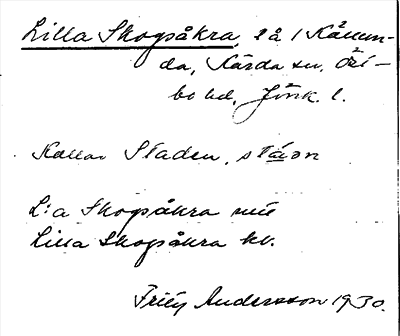 Lilla Skogsåkra, lå i Kånn-
da, Kärda sn, Öst-
bo hd, Jönk. l.
Kallas Staden, stáən
L:a Skogsåkra
Lilla Skogsåkra kv.
Fritz Andersson 1930.